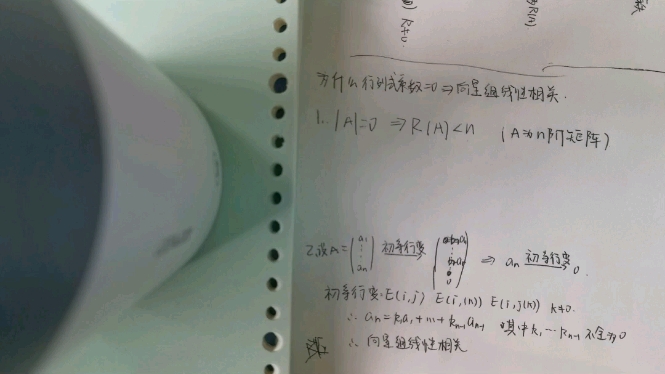 为什么行列式系数=0 ⇒ 向量组线性相关.
1. |A|=0 ⇒ R(A)<n (A为n阶矩阵)
2.设A= (a₁ ⋮ aₙ) 初等行变 ⇒ aₙ 初等行变 0.
初等行变: E(i,j) E(i,(k)) E(i,j(k)) k≠0.
∴ aₙ=k₁a₁+…+kₙ₋₁aₙ₋₁ 其中k₁…kₙ₋₁不全为0
∴ 向量组线性相关